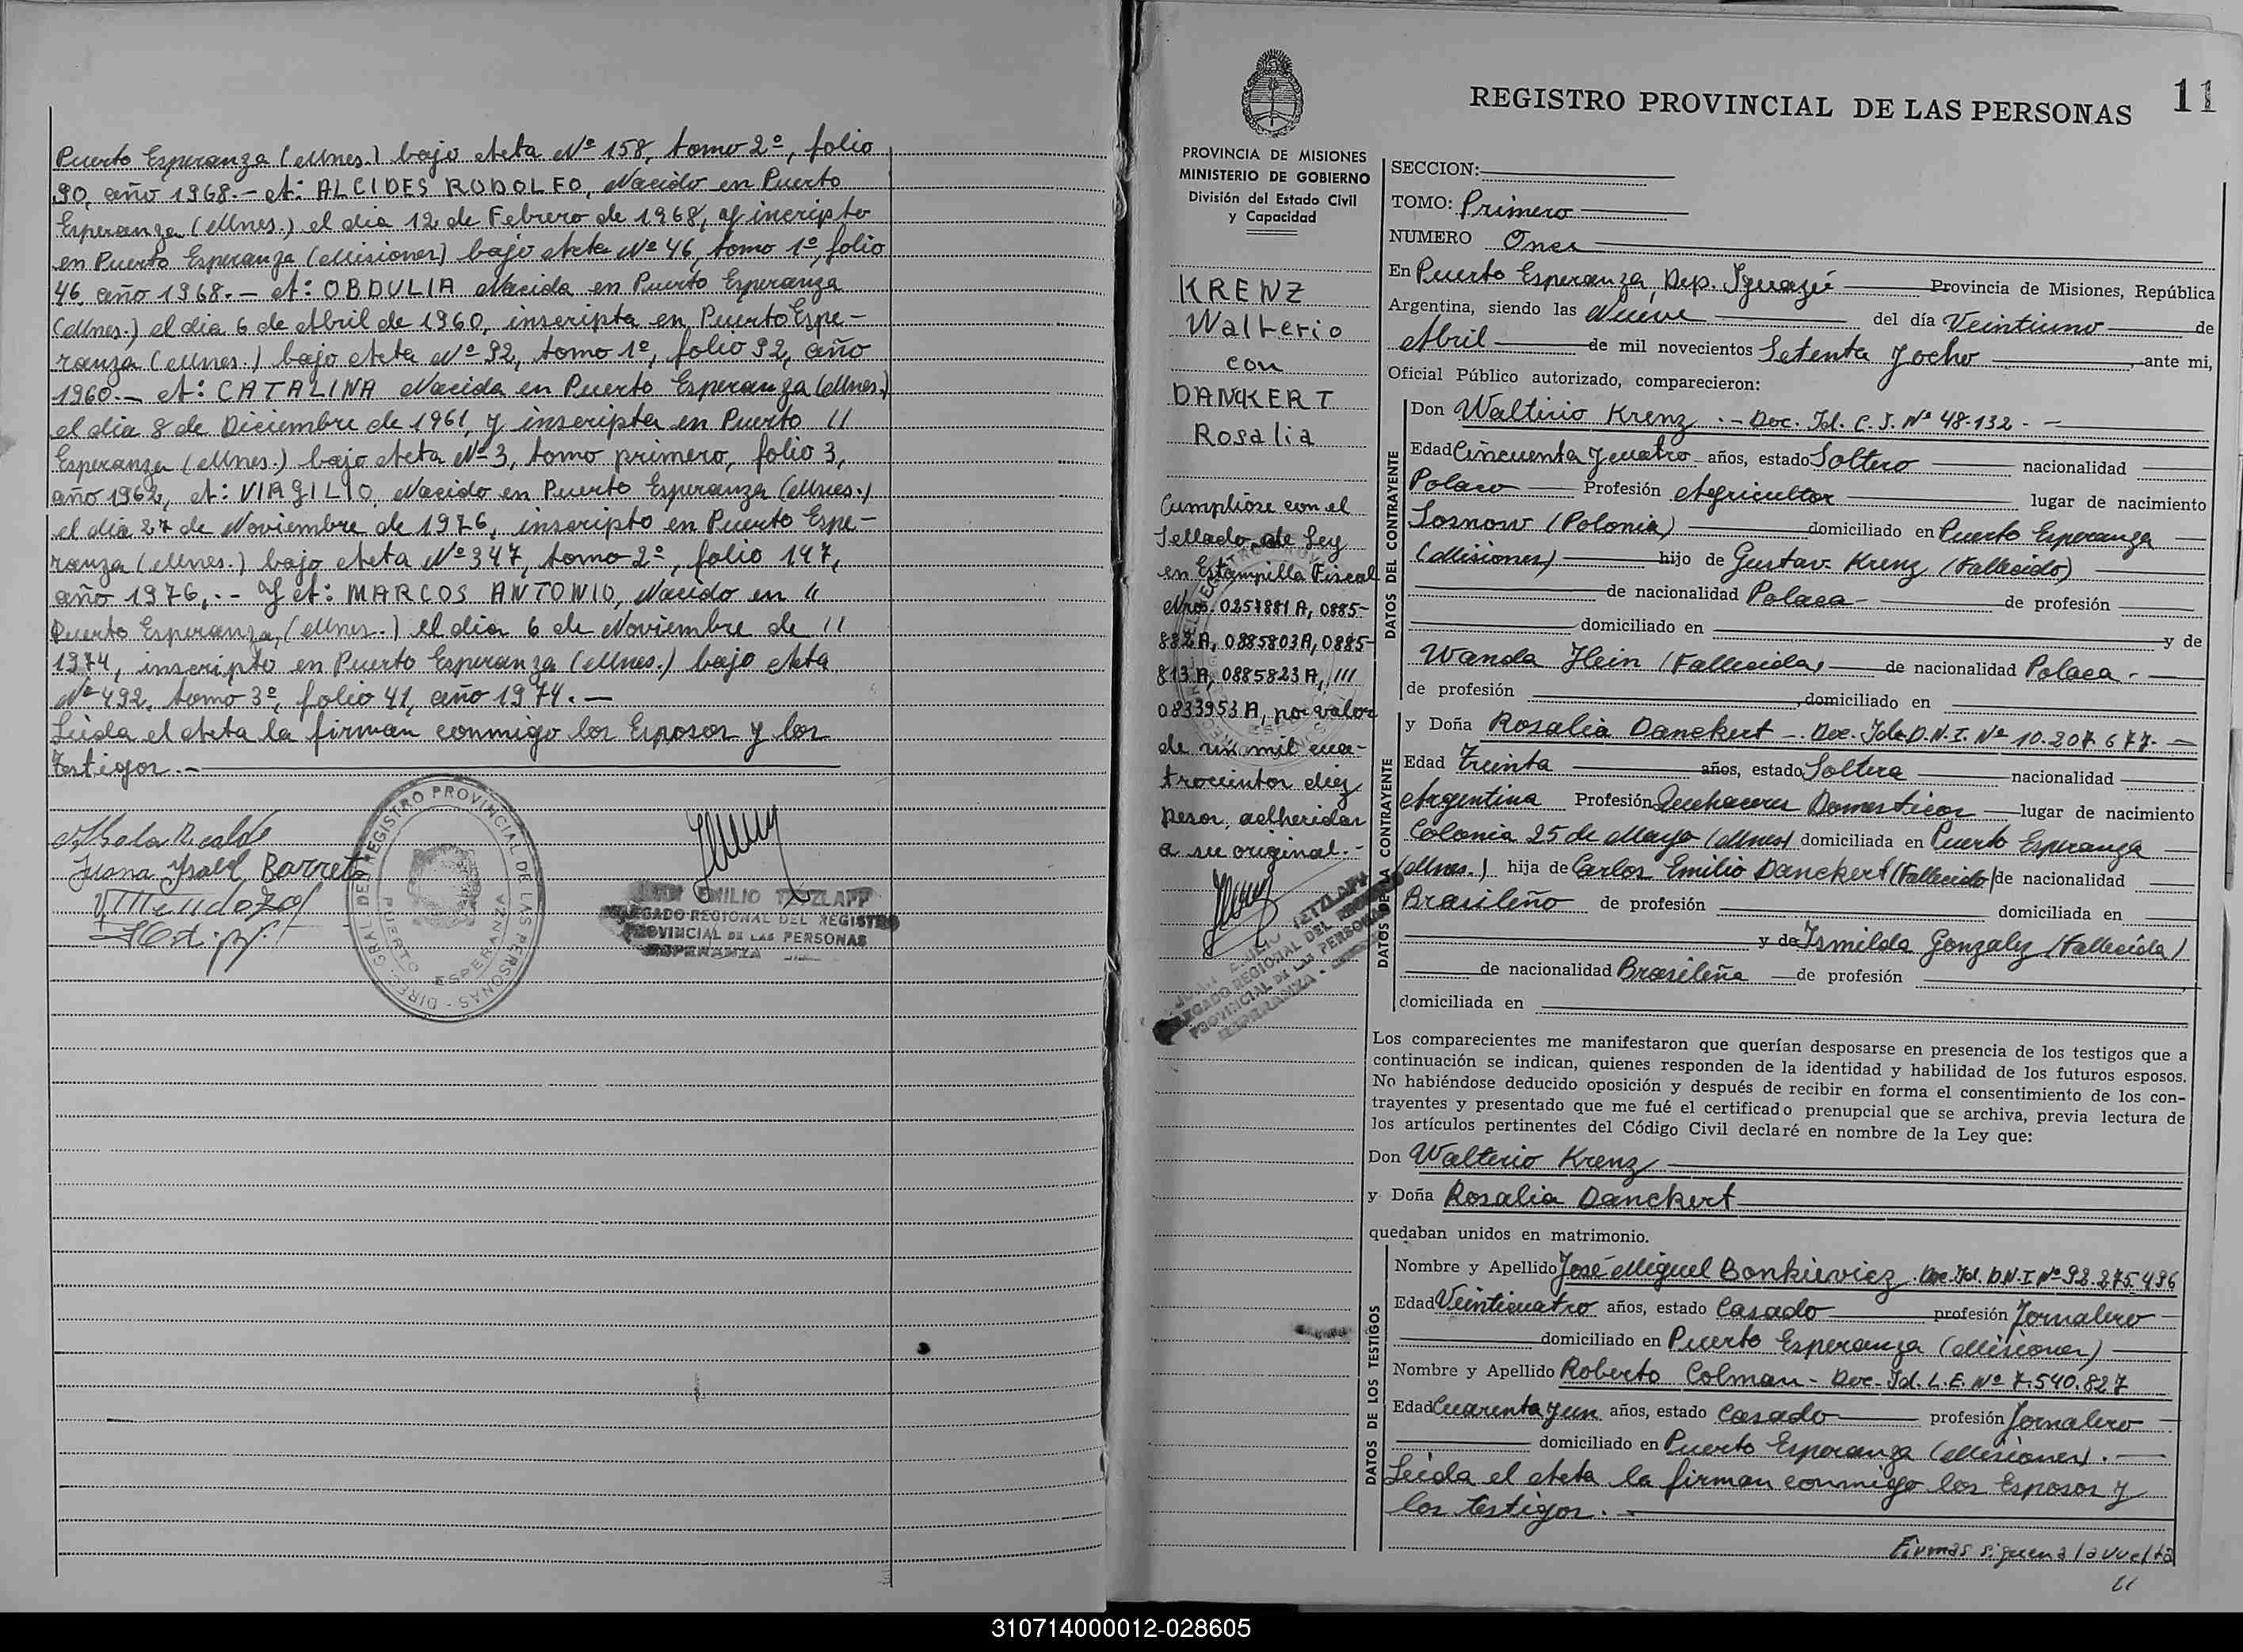 Puerto Esperanza (Mnes.) bajo Acta Nº 158, tomo 2º, folio
90, año 1968.- A: ALCIDES RODOLFO, Nacido en Puerto
Esperanza (Mnes.) el dia 12 de Febrero de 1968, y incripto
en Puerto Esperanza (Misiones) bajo Acta Nº 46, tomo 1º, folio
46, año 1968.- A: OBDULIA Nacida en Puerto Esperanza
(Mnes.) el dia 6 de Abril de 1960, inscripta en Puerto Espe-
ranza (Mnes.) bajo Acta Nº 92, tomo 1º, folio 92, año
1960.- A: CATALINA Nacida en Puerto Esperanza (Mnes.)
el dia 8 de Diciembre de 1961, y inscripta en Puerto //
Esperanza (Mnes.) bajo Acta Nº 3, tomo primero, folio 3,
año 1962, A: VIRGILIO, Nacido en Puerto Esperanza (Mnes.)
el día 27 de Noviembre de 1976, inscripto en Puerto Espe-
ranza (Mnes.) bajo Acta Nº 347, tomo 2º, folio 147,
año 1976,.- Y A: MARCOS ANTONIO, Nacido en "
Puerto Esperanza, (Mnes.) el dia 6 de Noviembre de //
1974, inscripto en Puerto Esperanza (Mnes.) bajo Acta
Nº 492, tomo 3º, folio 41, año 1974.-
Leida el Acta la firman conmigo los Esposos y los
Testigos.-
Juana Ysabel Barreto
REGISTRO PROVINCIAL DE LAS PERSONAS - DIREC. GRAL. DEL
PUERTO ESPERANZA
JUAN EMILIO TETZLAFF
DELEGADO REGIONAL DEL REGISTRO
PROVINCIAL DE LAS PERSONAS
ESPERANZA
REGISTRO PROVINCIAL DE LAS PERSONAS
11
PROVINCIA DE MISIONES
MINISTERIO DE GOBIERNO
División del Estado Civil
y Capacidad
KRENZ
Walterio
con
DANCKERT
Rosalia
Cumpliose con el
Sellado de Ley
en Estampilla Fiscal
Nros. 0257881 A, 0885-
882 A, 0885803 A, 0885-
813 A, 0885823 A, ///
0833953 A, por valor
de un mil cua-
trocientos diez
pesos, adheridas
a su original.-
JUAN EMILIO TETZLAFF
DELEGADO REGIONAL DEL REGISTRO
PROVINCIAL DE LAS PERSONAS
ESPERANZA -
SECCION:
TOMO: Primero
NUMERO Once
En Puerto Esperanza, Dep. Iguazú Provincia de Misiones, República
Argentina, siendo las Nueve del día Veintiuno de
Abril de mil novecientos Setenta y ocho, ante mi,
Oficial Público autorizado, comparecieron:
DATOS DEL CONTRAYENTE
Don Walterio Krenz .- Doc. Id. C. I. Nº 48.132.-
Edad Cincuenta y cuatro años, estado Soltero nacionalidad
Polaco Profesión Agricultor lugar de nacimiento
Sosnow (Polonia) domiciliado en Puerto Esperanza
(Misiones) hijo de Gustav Krenz (Fallecido)
de nacionalidad Polaca- de profesión
domiciliado en y de
Wanda Hein (Fallecida) de nacionalidad Polaca.-
de profesión , domiciliado en
DATOS DE LA CONTRAYENTE
y Doña Rosalia Danckert -. Doc. Id. D.N.I. Nº 10.207.677.-
Edad Treinta años, estado Soltera nacionalidad
Argentina Profesión Quehaceres Domesticos lugar de nacimiento
Colonia 25 de Mayo (Mnes) domiciliada en Puerto Esperanza
(Mnes.) hija de Carlos Emilio Danckert (Fallecido) de nacionalidad
Brasileño de profesión domiciliada en
y de Ismilda Gonzalez (Fallecida)
de nacionalidad Brasileña de profesión
domiciliada en
Los comparecientes me manifestaron que querían desposarse en presencia de los testigos que a
continuación se indican, quienes responden de la identidad y habilidad de los futuros esposos.
No habiéndose deducido oposición y después de recibir en forma el consentimiento de los con-
trayentes y presentado que me fué el certificado prenupcial que se archiva, previa lectura de
los artículos pertinentes del Código Civil declaré en nombre de la Ley que:
Don Walterio Krenz
y Doña Rosalia Danckert
quedaban unidos en matrimonio.
DATOS DE LOS TESTIGOS
Nombre y Apellido José Miguel Bonkieviez. Doc. Id. D.N.I Nº 92.275.496
Edad Veinticuatro años, estado Casado profesión Jornalero
domiciliado en Puerto Esperanza (Misiones)
Nombre y Apellido Roberto Colman - Doc. Id. L.E. Nº 7.540.827
Edad Cuarenta y un años, estado Casado profesión Jornalero
domiciliado en Puerto Esperanza (Misiones).-
Leida el Acta la firman conmigo los Esposos y
los testigos.-
Firmas siguen a la vuelta
//
310714000012-028605